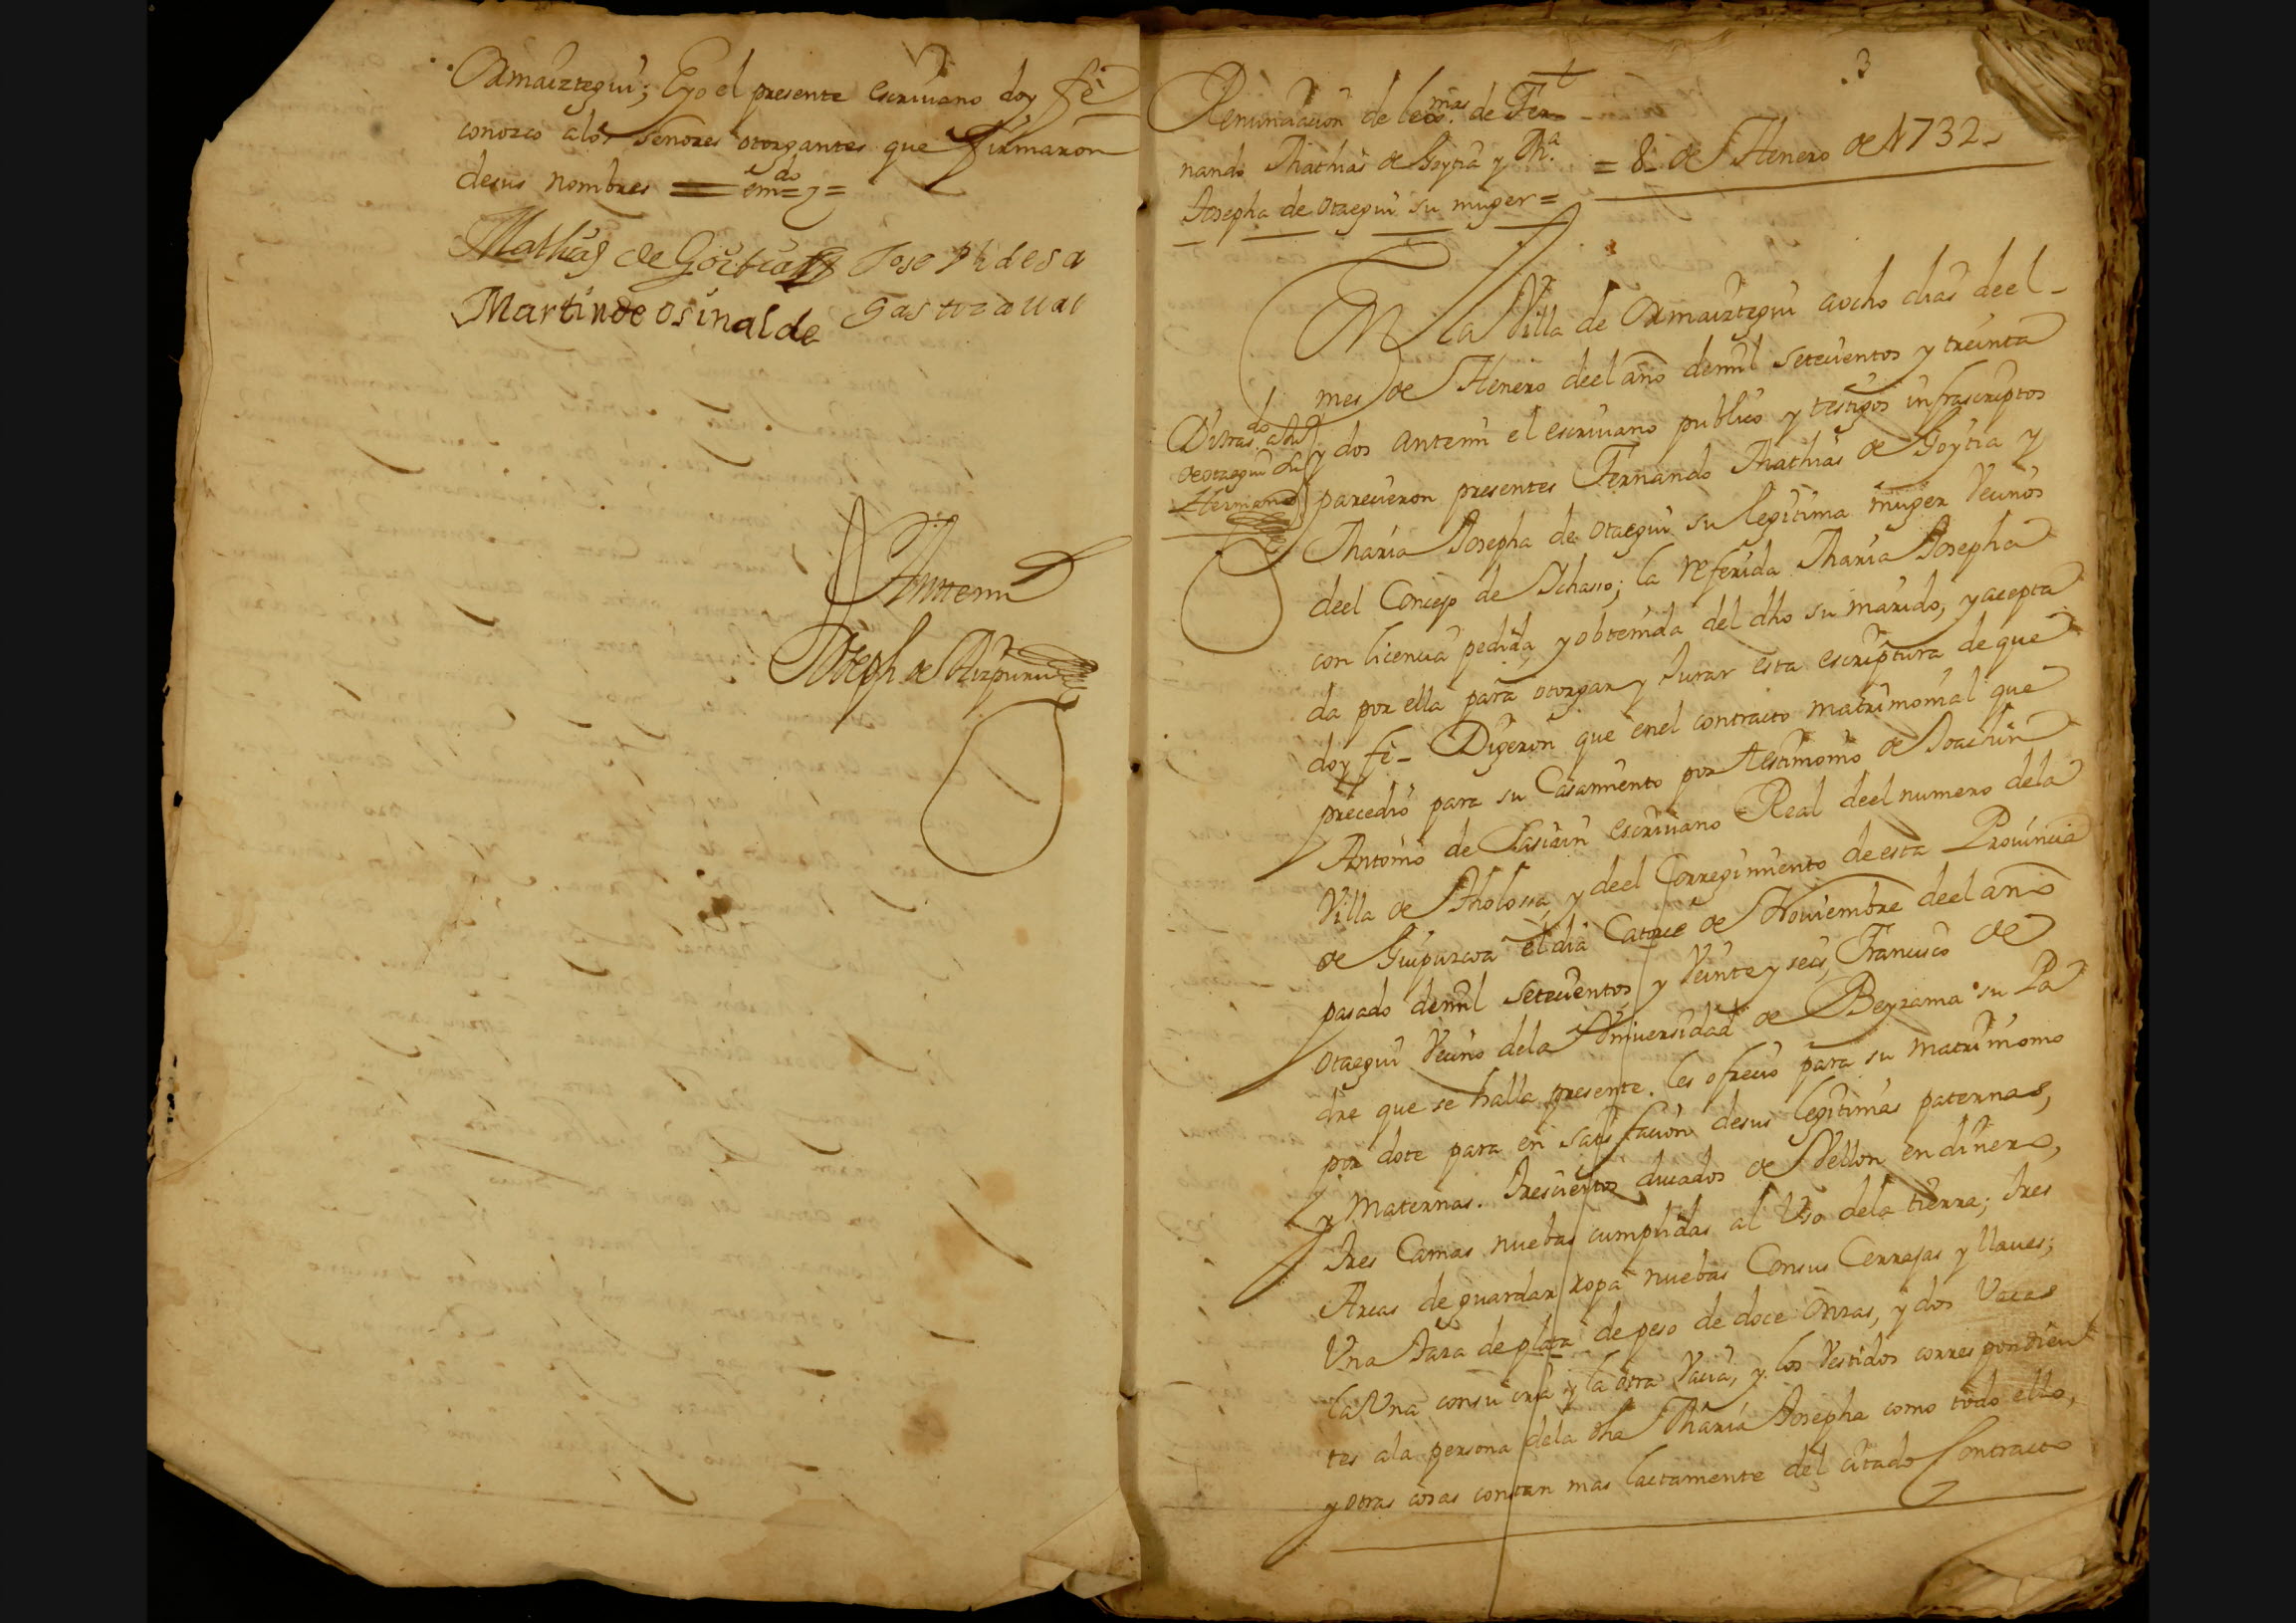 Ormaiztegui; Eyo el presente escriuano doy fè
conozco alos Senores otorgantes que firmaron
desus nombres = em.do = y =
Mathias de Goitia Joseph de sa
Martin de osinalde gastizaual
Antemi
Joseph de Aizpuru
3
Renunciacion de lexmas. de Fer-
nando Mathias de Goytia y Ma.
Josepha de otaegui su muger =
= 8 de Henero de 1732 -
EN la Villa de Ormaiztegui aocho dias deel -
mes de Henero deel año demil setecientos y treinta
y dos antemi el escriuano publico y testigos infrascriptos
parecieron presentes Fernando Mathias de Goytia y
Maria Josepha de otaegui su legitima muger Vecinos
deel Concejo de Ichasso; la referida Maria Josepha
con licencia pedida, y obtenida del dho su marido, y acepta
da por ella para otorgar y Jurar esta escriptura de que
doy fè - Digeron que enel contracto matrimonial que
precediò para su Casamiento por testimonio de Joachin
Antonio de escriuano Real deel numero dela
Villa de Tholossa, y deel Corregimiento de esta Prouincia
de Guipuzcoa el dia Catorce de Nouiembre deel año
pasado demil Setecientos y Veinte y seis, Francisco de
otaegui Vecino dela Vniuersidad de Beyzama su Pa
dre que se halla presente. les ofreciò para su matrimonio
por dote para en satisfacion desus legitimas paternas,
y Maternas. Trescientos ducados de Vellon en dinero,
Tres Camas nuebas cumplidas al Vso dela tierra; Tres
Arcas de guardar ropa nuebas Consus Cerrajas y llaues;
Vna Taza de plata de peso de doce Onzas, y dos Vacas
la Vna consu cria y la otra Vacia, y los Vestidos correspondien
tes ala persona dela dha Maria Josepha como todo ello,
y otras cosas constan mas lactamente del citado Contracto
D tras.do a
de otaegui su
Hermano